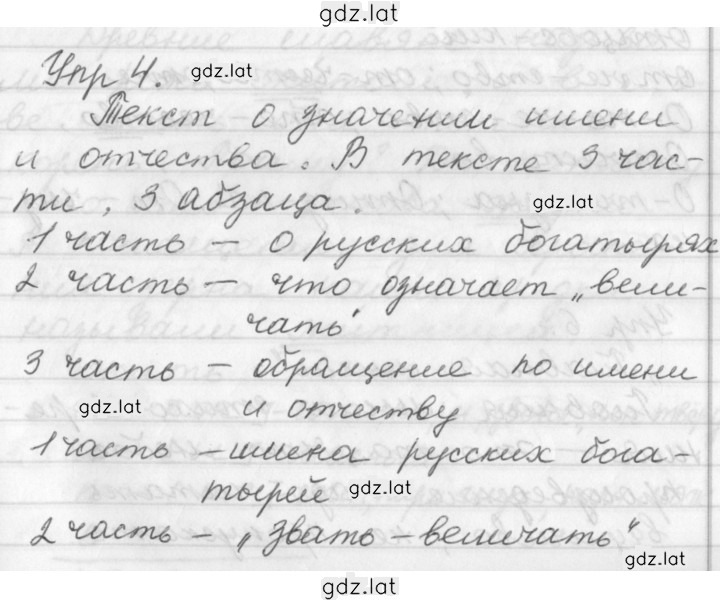 gdz.lat
Упр 4. gdz.lat
Текст о значении имени
и отчества. В тексте 3 час-
ти, 3 абзаца. gdz.lat
1 часть – о русских богатырях
2 часть – что означает „вели-
чать"
3 часть – обращение по имени
gdz.lat и отчеству
1 часть – имена русских бога-
тырей gdz.lat
2 часть – „Звать – величать"
gdz.lat
gdz.lat